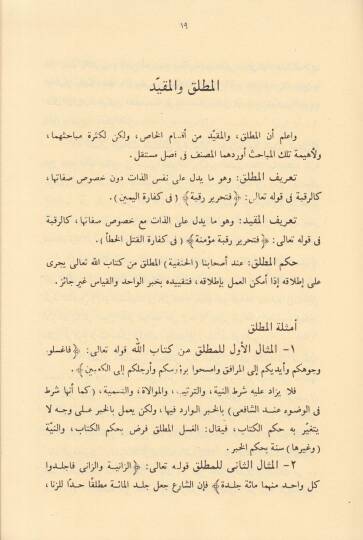 ١٩
المطلق والمقيّد
واعلم أن المطلق، والمقيّد من أقسام الخاص، ولكن لكثرة مباحثهما،
ولأهيمة تلك المباحث أوردهما المصنف فى فصل مستقل.
تعريف المطلق: وهو ما يدل على نفس الذات دون خصوص صفاتها،
كالرقبة فى قوله تعالى: ﴿فتحرير رقبة﴾ (فى كفارة اليمين).
تعريف المقيد: وهو ما يدل على الذات مع خصوص صفاتها، كالرقبة
فى قوله تعالى: ﴿فتحرير رقبة مؤمنة﴾ (فى كفارة القتل الخطأ).
حكم المطلق: عند أصحابنا (الحنفية) المطلق من كتاب الله تعالى يجرى
على إطلاقه إذا أمكن العمل بإطلاقه، فتقييده بخبر الواحد والقياس غير جائز.
أمثلة المطلق
١- المثال الأول للمطلق من كتاب الله قوله تعالى: ﴿فاغسلو.
وجوهكم وأيديكم إلى المرافق وامسحوا برؤسكم وأرجلكم إلى الكعبين﴾.
فلا يزاد عليه شرط النية، والترتيب، والموالاة، والتسمية، (كما أنها شرط
فى الوضوء عند الشافعى) بالخبر الوارد فيها، ولكن يعمل بالخبر على وجه لا
يتغيّر به حكم الكتاب، فيقال: الغسل المطلق فرض بحكم الكتاب، والنيّة
(وغيرها) سنة بحكم الخبر.
٢- المثال الثانى للمطلق قوله تعالى: ﴿الزانية والزانى فاجلدوا
كل واحد منهما مائة جلدة﴾ فإن الشارع جعل جلد المائة مطلقًا حدًا للزنا،